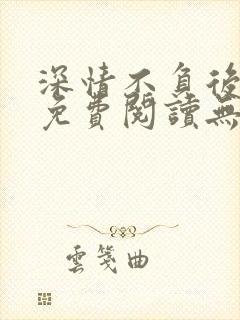 深情不負後
免費閱讀無
雲箋曲